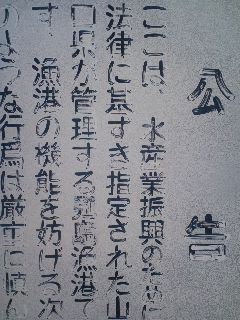 公告
ここは、水産業振興のために
法律に基ずき指定された山
口県が管理する 島漁港で
す。漁港の機能を妨げる次
のような行為は厳重に慎ん